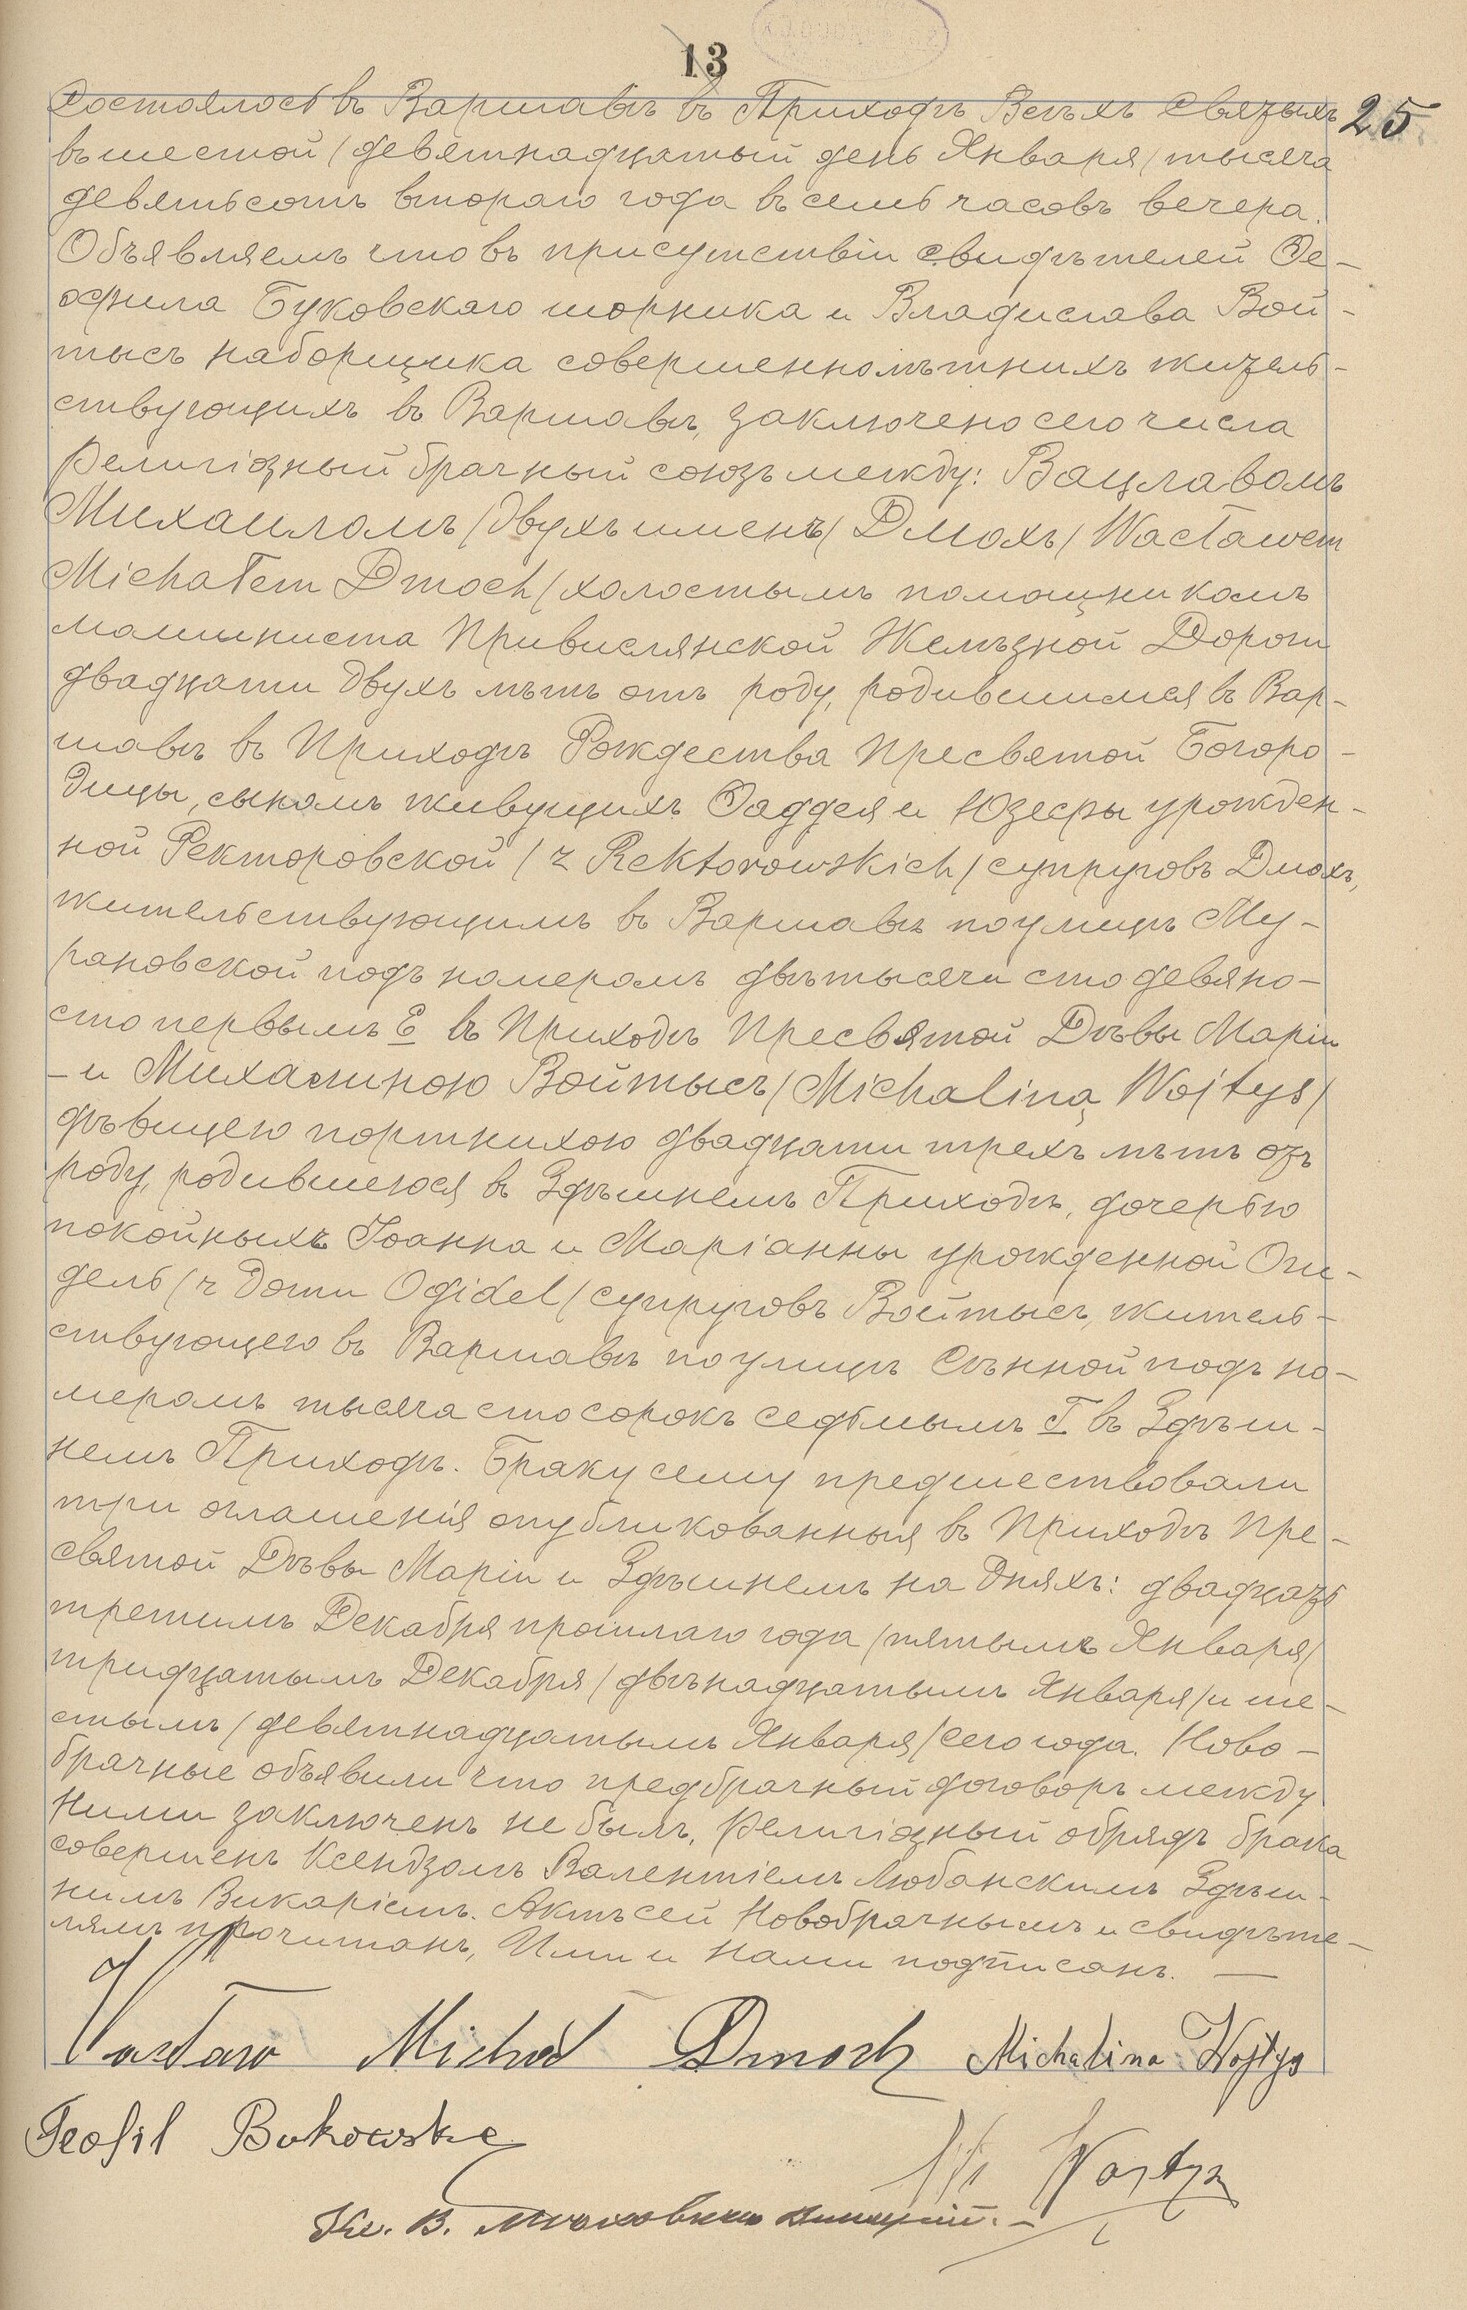 13
25
Состоялось въ Варшавѣ въ Приходѣ Всѣхъ Святыхъ
въ шестой / девятнадцатый день Января / тысяча
девятьсотъ втораго года въ семь часовъ вечера.
Объявляемъ что въ присутствіи свидѣтелей Ѳе-
офила Буковскаго шорника и Владислава Вой-
тысъ наборщика совершеннолѣтнихъ житель-
ствующихъ въ Варшавѣ, заключено сего числа
религіозный брачный союзъ между: Вацлавомъ
Михаиломъ / двухъ именъ / Дмохъ / Wacławem
Michałem Dmoch / холостымъ помощникомъ
машиниста Привислянской Желѣзной Дороги
двадцати двухъ лѣтъ отъ роду, родившимся въ Вар-
шавѣ въ Приходѣ Рождества Пресвятой Богоро-
дицы, сыномъ живущихъ Ѳаддея и Юзефы урожден-
ной Ректоровской / z Rektorowskich / супруговъ Дмохъ,
жительствующимъ въ Варшавѣ по улицѣ Му-
рановской подъ номеромъ двѣ тысячи сто девяно-
сто первымъ Е въ Приходѣ Пресвятой Дѣвы Маріи
– и Михалиною Войтысъ / Michaliną Wojtys /
дѣвицею портнихою двадцати трехъ лѣтъ отъ
роду, родившеюся въ Здѣшнемъ Приходѣ, дочерью
покойныхъ Іоанна и Маріанны урожденной Оги-
дель / z domu Ogidel / супруговъ Войтысъ, житель-
ствующею въ Варшавѣ по улицѣ Сѣнной подъ но-
меромъ тысяча сто сорокъ седьмымъ Г въ Здѣш-
немъ Приходѣ. Браку сему предшествовали
три оглашенія опубликованныя въ Приходѣ Пре-
святой Дѣвы Маріи и Здѣшнемъ на дняхъ: двадцать
третьимъ Декабря прошлаго года / пятымъ Января /
тридцатымъ Декабря / двѣнадцатымъ Января / и ше-
стымъ / девятнадцатымъ Января / сего года. Ново-
брачные объявили что предбрачный договоръ между
ними заключенъ не былъ. Религіозный обрядъ брака
совершенъ Ксендзомъ Валентіемъ Любанскимъ Здѣш-
нимъ Викаріемъ. Актъ сей Новобрачнымъ и свидѣте-
лямъ прочитанъ, Ими и Нами подписанъ. —
Wacław Michał Dmoch Michalina Wojtys
Teofil Bukowski
Wł Wojtys
Кс. В.